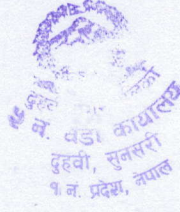 दुहवी
न. वडा कार्यालय
दुहवी, सुनसरी
१ न. प्रदेश, नेपाल